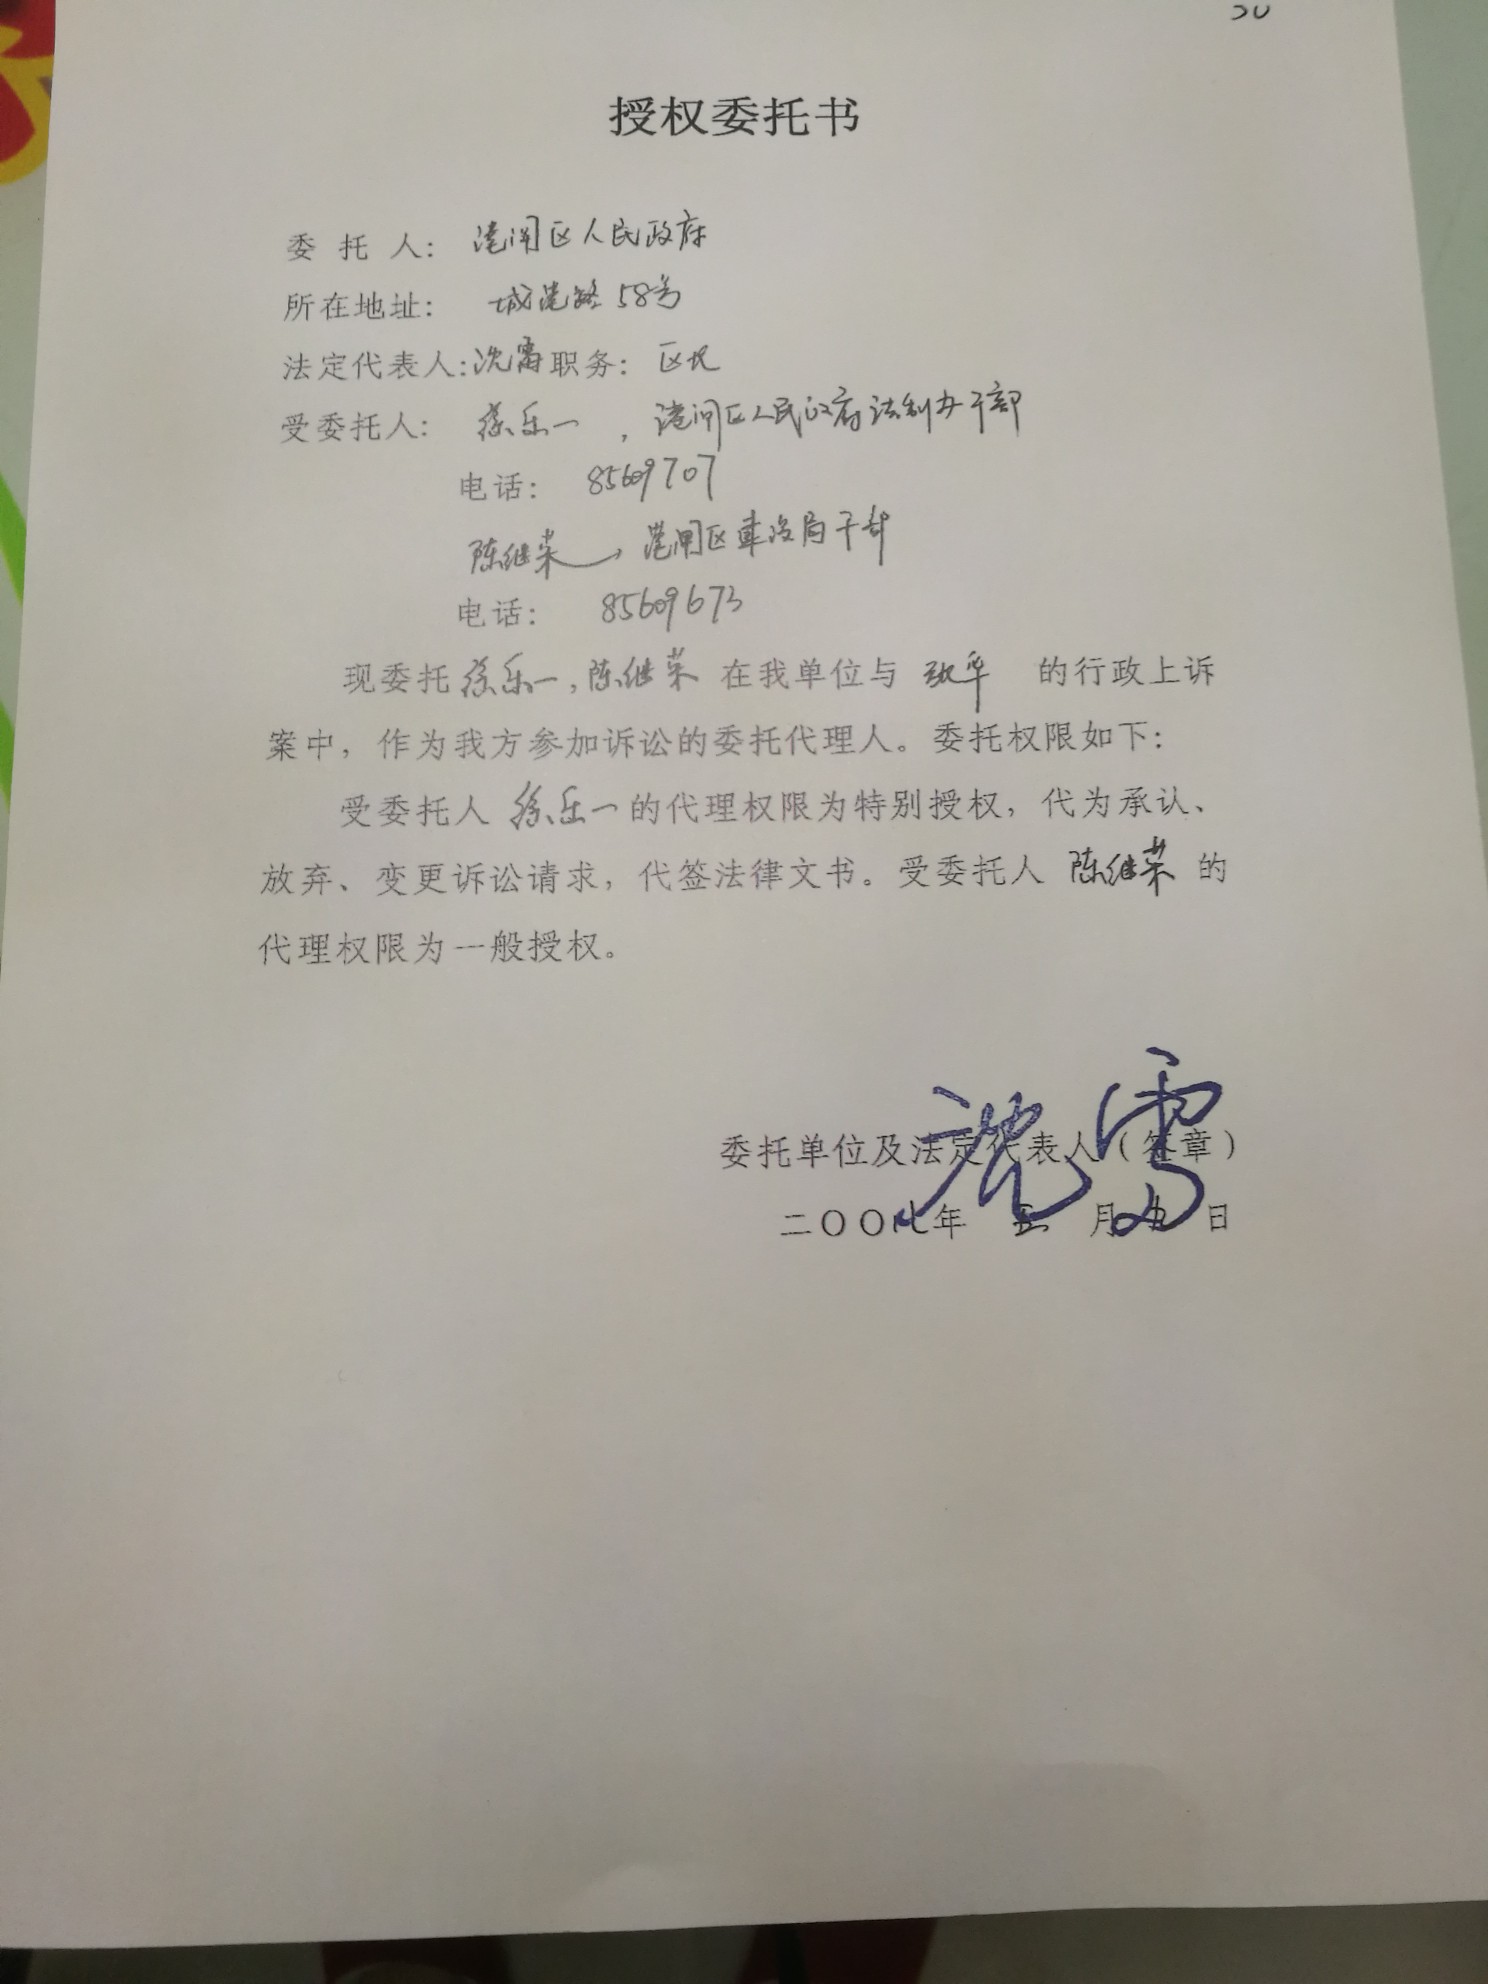 授权委托书
委托人：港闸区人民政府
所在地址：城港路58号
法定代表人：沈雷职务：区长
受委托人：徐乐一，港闸区人民政府法制办干部
电话：85609707
陈继荣，港闸区建设局干部
电话：85609673
现委托徐乐一，陈继荣在我单位与张华的行政上诉
案中，作为我方参加诉讼的委托代理人。委托权限如下：
受委托人徐乐一的代理权限为特别授权，代为承认、
放弃、变更诉讼请求，代签法律文书。受委托人陈继荣的
代理权限为一般授权。
沈雷
委托单位及法定代表人（签章）
二〇〇七年五月九日